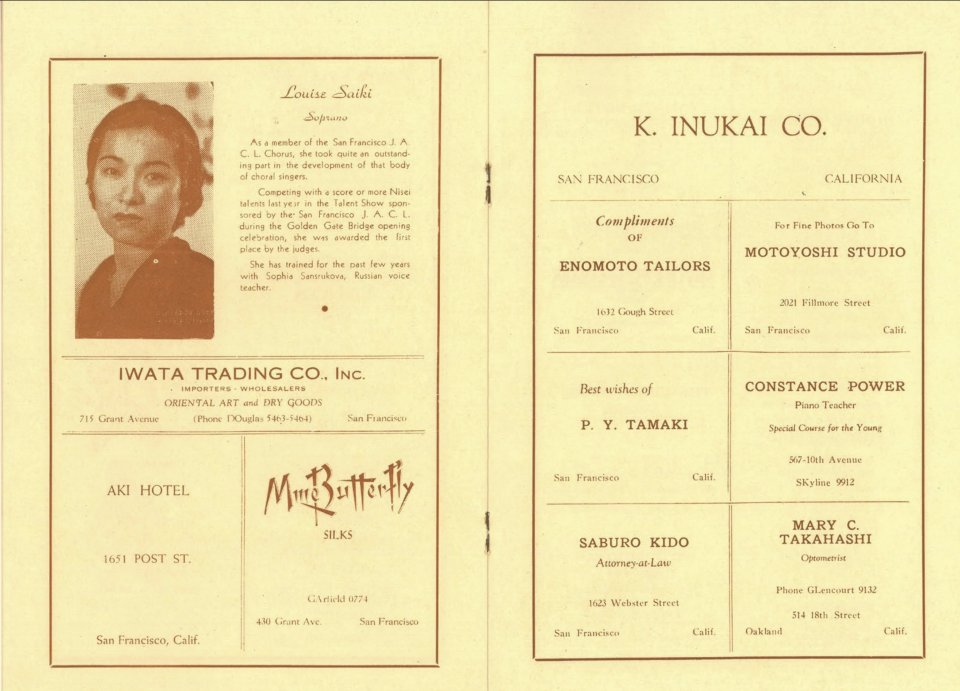 Louise Saiki
Soprano
As a member of the San Francisco J. A.
C. L. Chorus, she took quite an outstand-
ing part in the development of that body
of choral singers.
Competing with a score or more Nisei
talents last year in the Talent Show spon-
sored by the San Francisco J. A. C. L.
during the Golden Gate Bridge opening
celebration, she was awarded the first
place by the judges.
She has trained for the past few years
with Sophia Samrukova, Russian voice
teacher.
IWATA TRADING CO., INC.
IMPORTERS - WHOLESALERS
ORIENTAL ART and DRY GOODS
715 Grant Avenue (Phone DOuglas 5463-5464) San Francisco
AKI HOTEL
1651 POST ST.
San Francisco, Calif.
Mme Butterfly
SILKS
GArfield 0774
430 Grant Ave. San Francisco
K. INUKAI CO.
SAN FRANCISCO CALIFORNIA
Compliments
OF
ENOMOTO TAILORS
1632 Gough Street
San Francisco Calif.
For Fine Photos Go To
MOTOYOSHI STUDIO
2021 Fillmore Street
San Francisco Calif.
Best wishes of
P. Y. TAMAKI
San Francisco Calif.
CONSTANCE POWER
Piano Teacher
Special Course for the Young
567-10th Avenue
SKyline 9912
SABURO KIDO
Attorney-at-Law
1623 Webster Street
San Francisco Calif.
MARY C.
TAKAHASHI
Optometrist
Phone GLencourt 9132
514 18th Street
Oakland Calif.